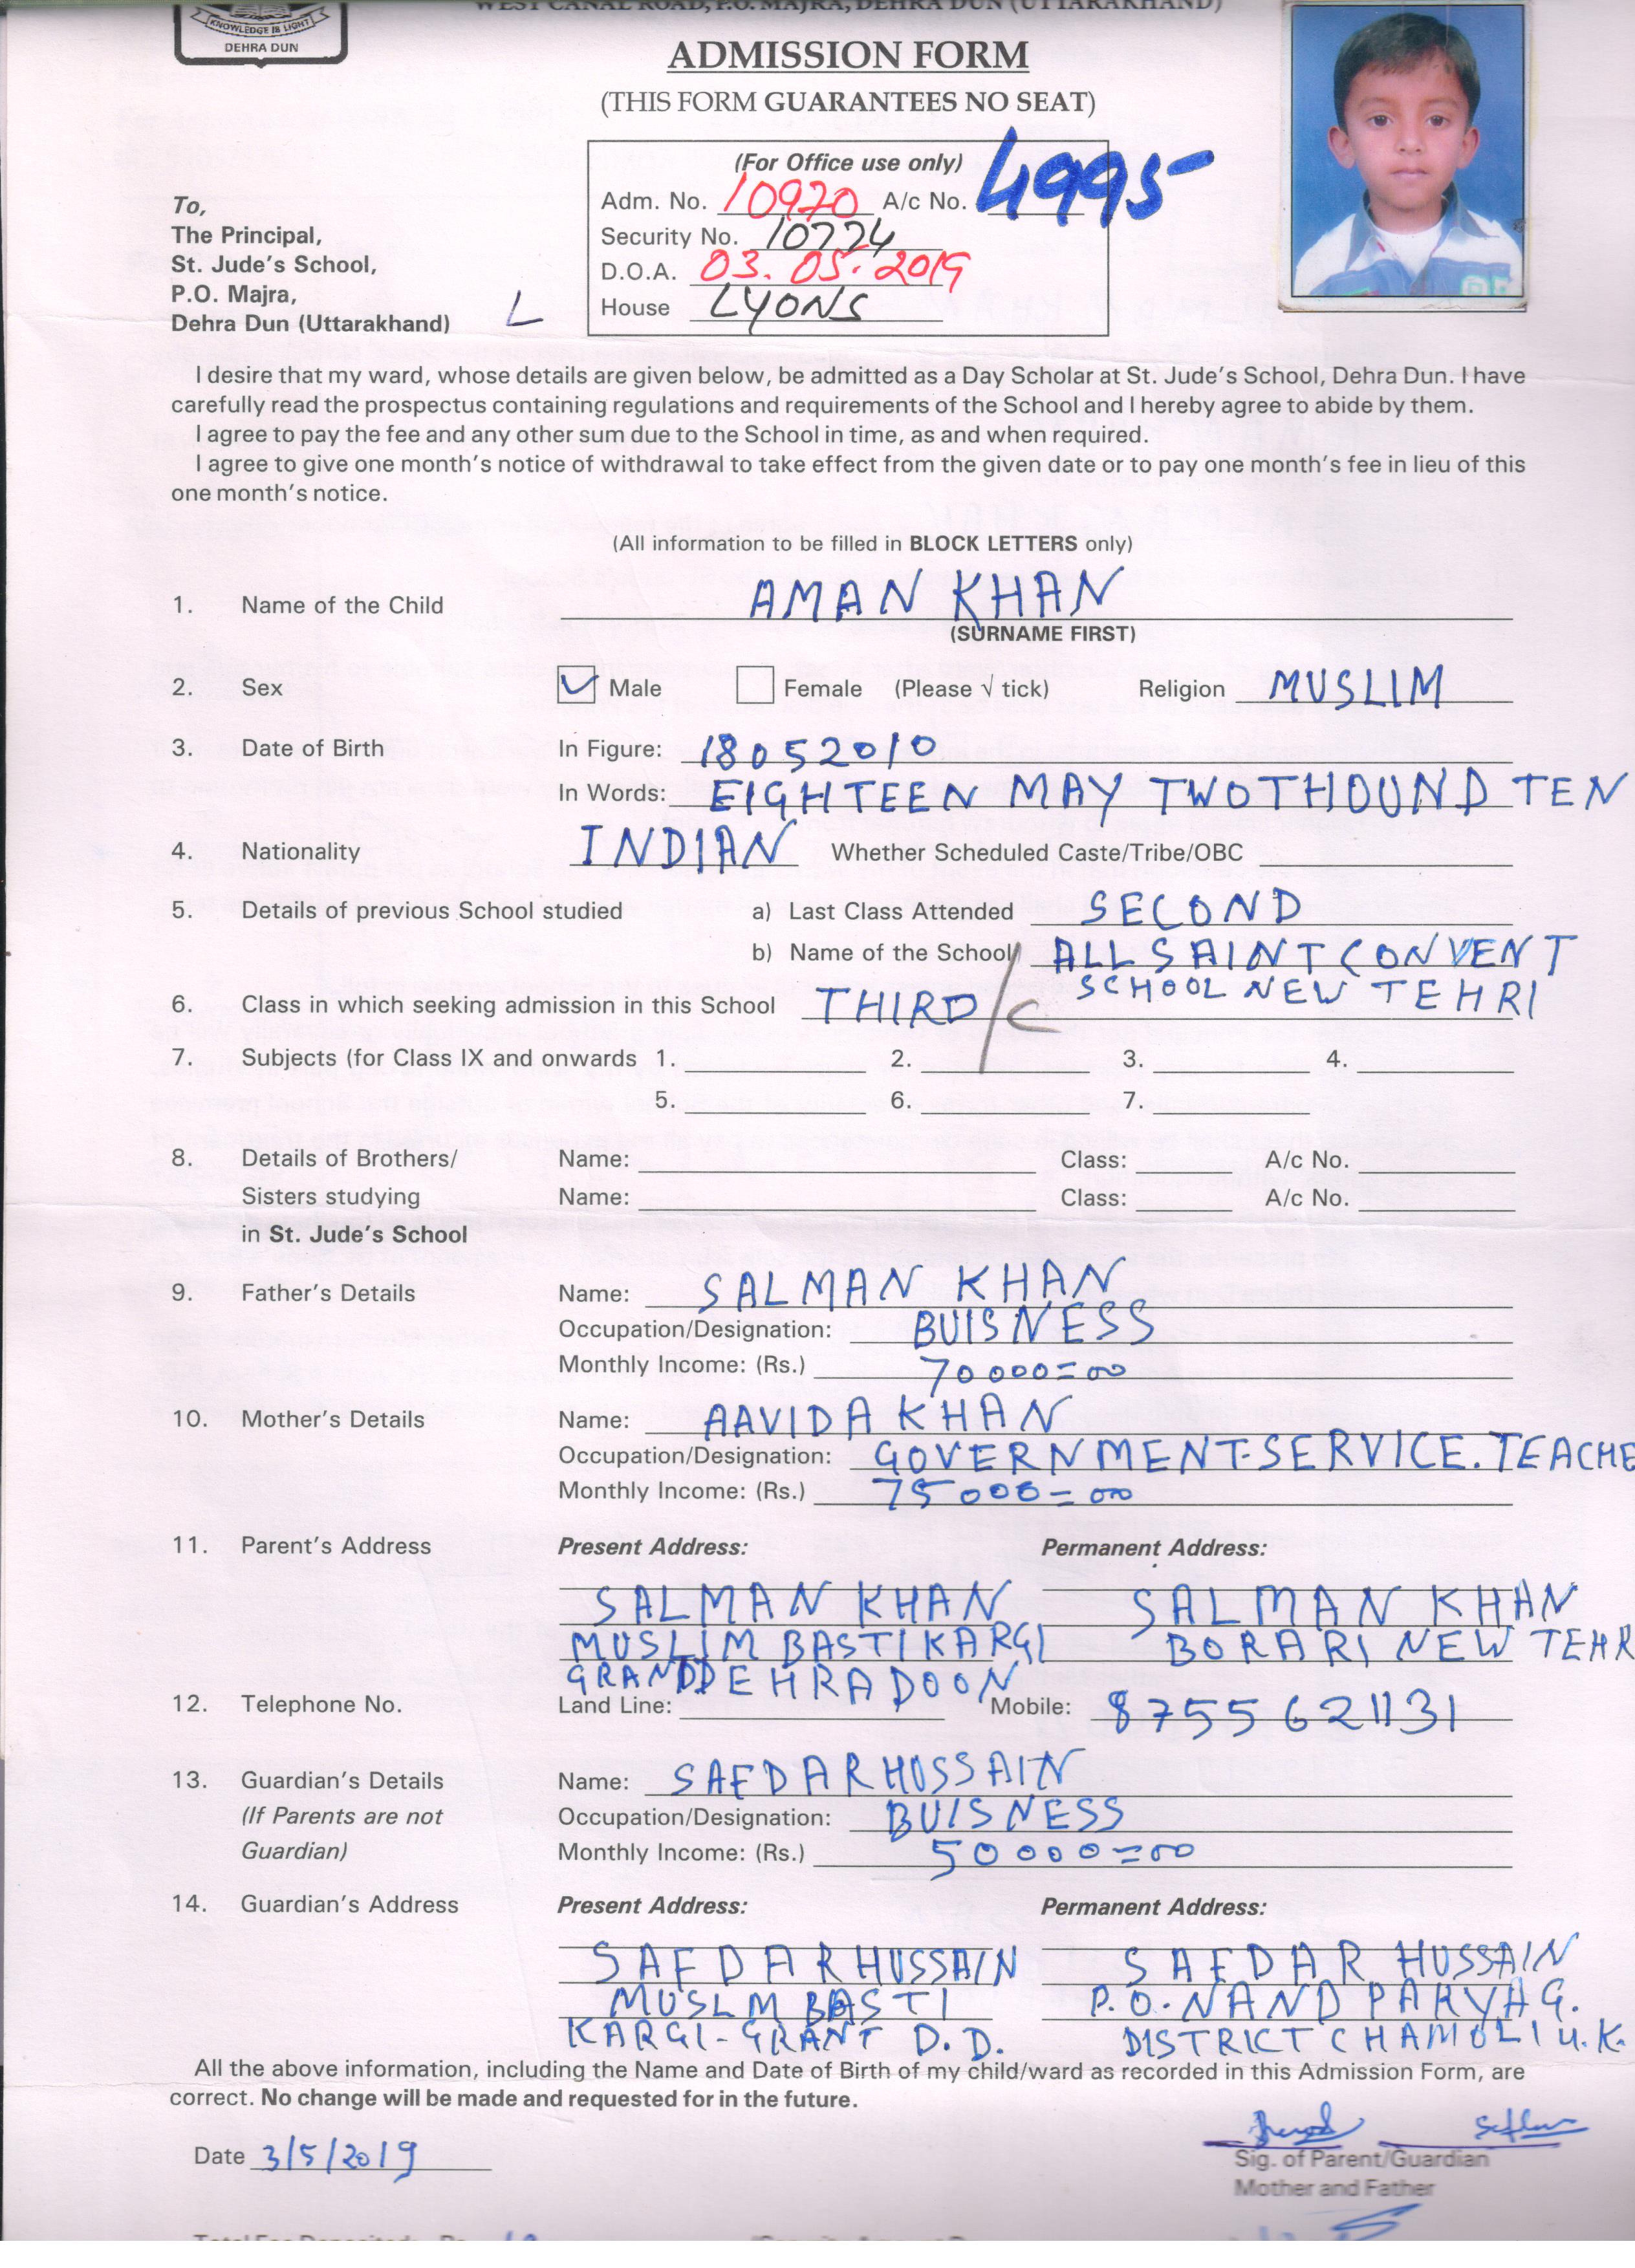 WEST CANAL ROAD, P.O. MAJRA, DEHRA DUN (UTTARAKHAND)
KNOWLEDGE IS LIGHT
DEHRA DUN
ADMISSION FORM
(THIS FORM GUARANTEES NO SEAT)
(For Office use only)
Adm. No. 10970 A/c No. 4995
Security No. 10774
D.O.A. 03.05.2019
House LYONS
To,
The Principal,
St. Jude's School,
P.O. Majra,
Dehra Dun (Uttarakhand)
L
I desire that my ward, whose details are given below, be admitted as a Day Scholar at St. Jude's School, Dehra Dun. I have
carefully read the prospectus containing regulations and requirements of the School and I hereby agree to abide by them.
I agree to pay the fee and any other sum due to the School in time, as and when required.
I agree to give one month's notice of withdrawal to take effect from the given date or to pay one month's fee in lieu of this
one month's notice.
(All information to be filled in BLOCK LETTERS only)
1. Name of the Child AMAN KHAN
(SURNAME FIRST)
2. Sex Male Female (Please √ tick) Religion MUSLIM
3. Date of Birth In Figure: 18052010
In Words: EIGHTEEN MAY TWOTHOUND TEN
4. Nationality INDIAN Whether Scheduled Caste/Tribe/OBC
5. Details of previous School studied a) Last Class Attended SECOND
b) Name of the School ALL SAINT CONVENT
SCHOOL NEW TEHRI
6. Class in which seeking admission in this School THIRD/C
7. Subjects (for Class IX and onwards 1. 2. 3. 4.
5. 6. 7.
8. Details of Brothers/ Name: Class: A/c No.
Sisters studying Name: Class: A/c No.
in St. Jude's School
9. Father's Details Name: SALMAN KHAN
Occupation/Designation: BUISNESS
Monthly Income: (Rs.) 70000=00
10. Mother's Details Name: AAVIDA KHAN
Occupation/Designation: GOVERNMENT-SERVICE. TEACHE
Monthly Income: (Rs.) 75000=00
11. Parent's Address Present Address: Permanent Address:
SALMAN KHAN SALMAN KHAN
MUSLIM BASTI KARGI BORARI NEW TEHR
GRANDDEHRADOON
12. Telephone No. Land Line: Mobile: 8755621131
13. Guardian's Details Name: SAFDAR HUSSAIN
(If Parents are not Occupation/Designation: BUISNESS
Guardian) Monthly Income: (Rs.) 50000=00
14. Guardian's Address Present Address: Permanent Address:
SAFDAR HUSSAIN SAFDAR HUSSAIN
MUSLM BASTI P.O. NAND PARYAG.
KARGI-GRANT D.D. DISTRICT CHAMOLI U.K.
All the above information, including the Name and Date of Birth of my child/ward as recorded in this Admission Form, are
correct. No change will be made and requested for in the future.
Date 3/5/2019
Sig. of Parent/Guardian
Mother and Father